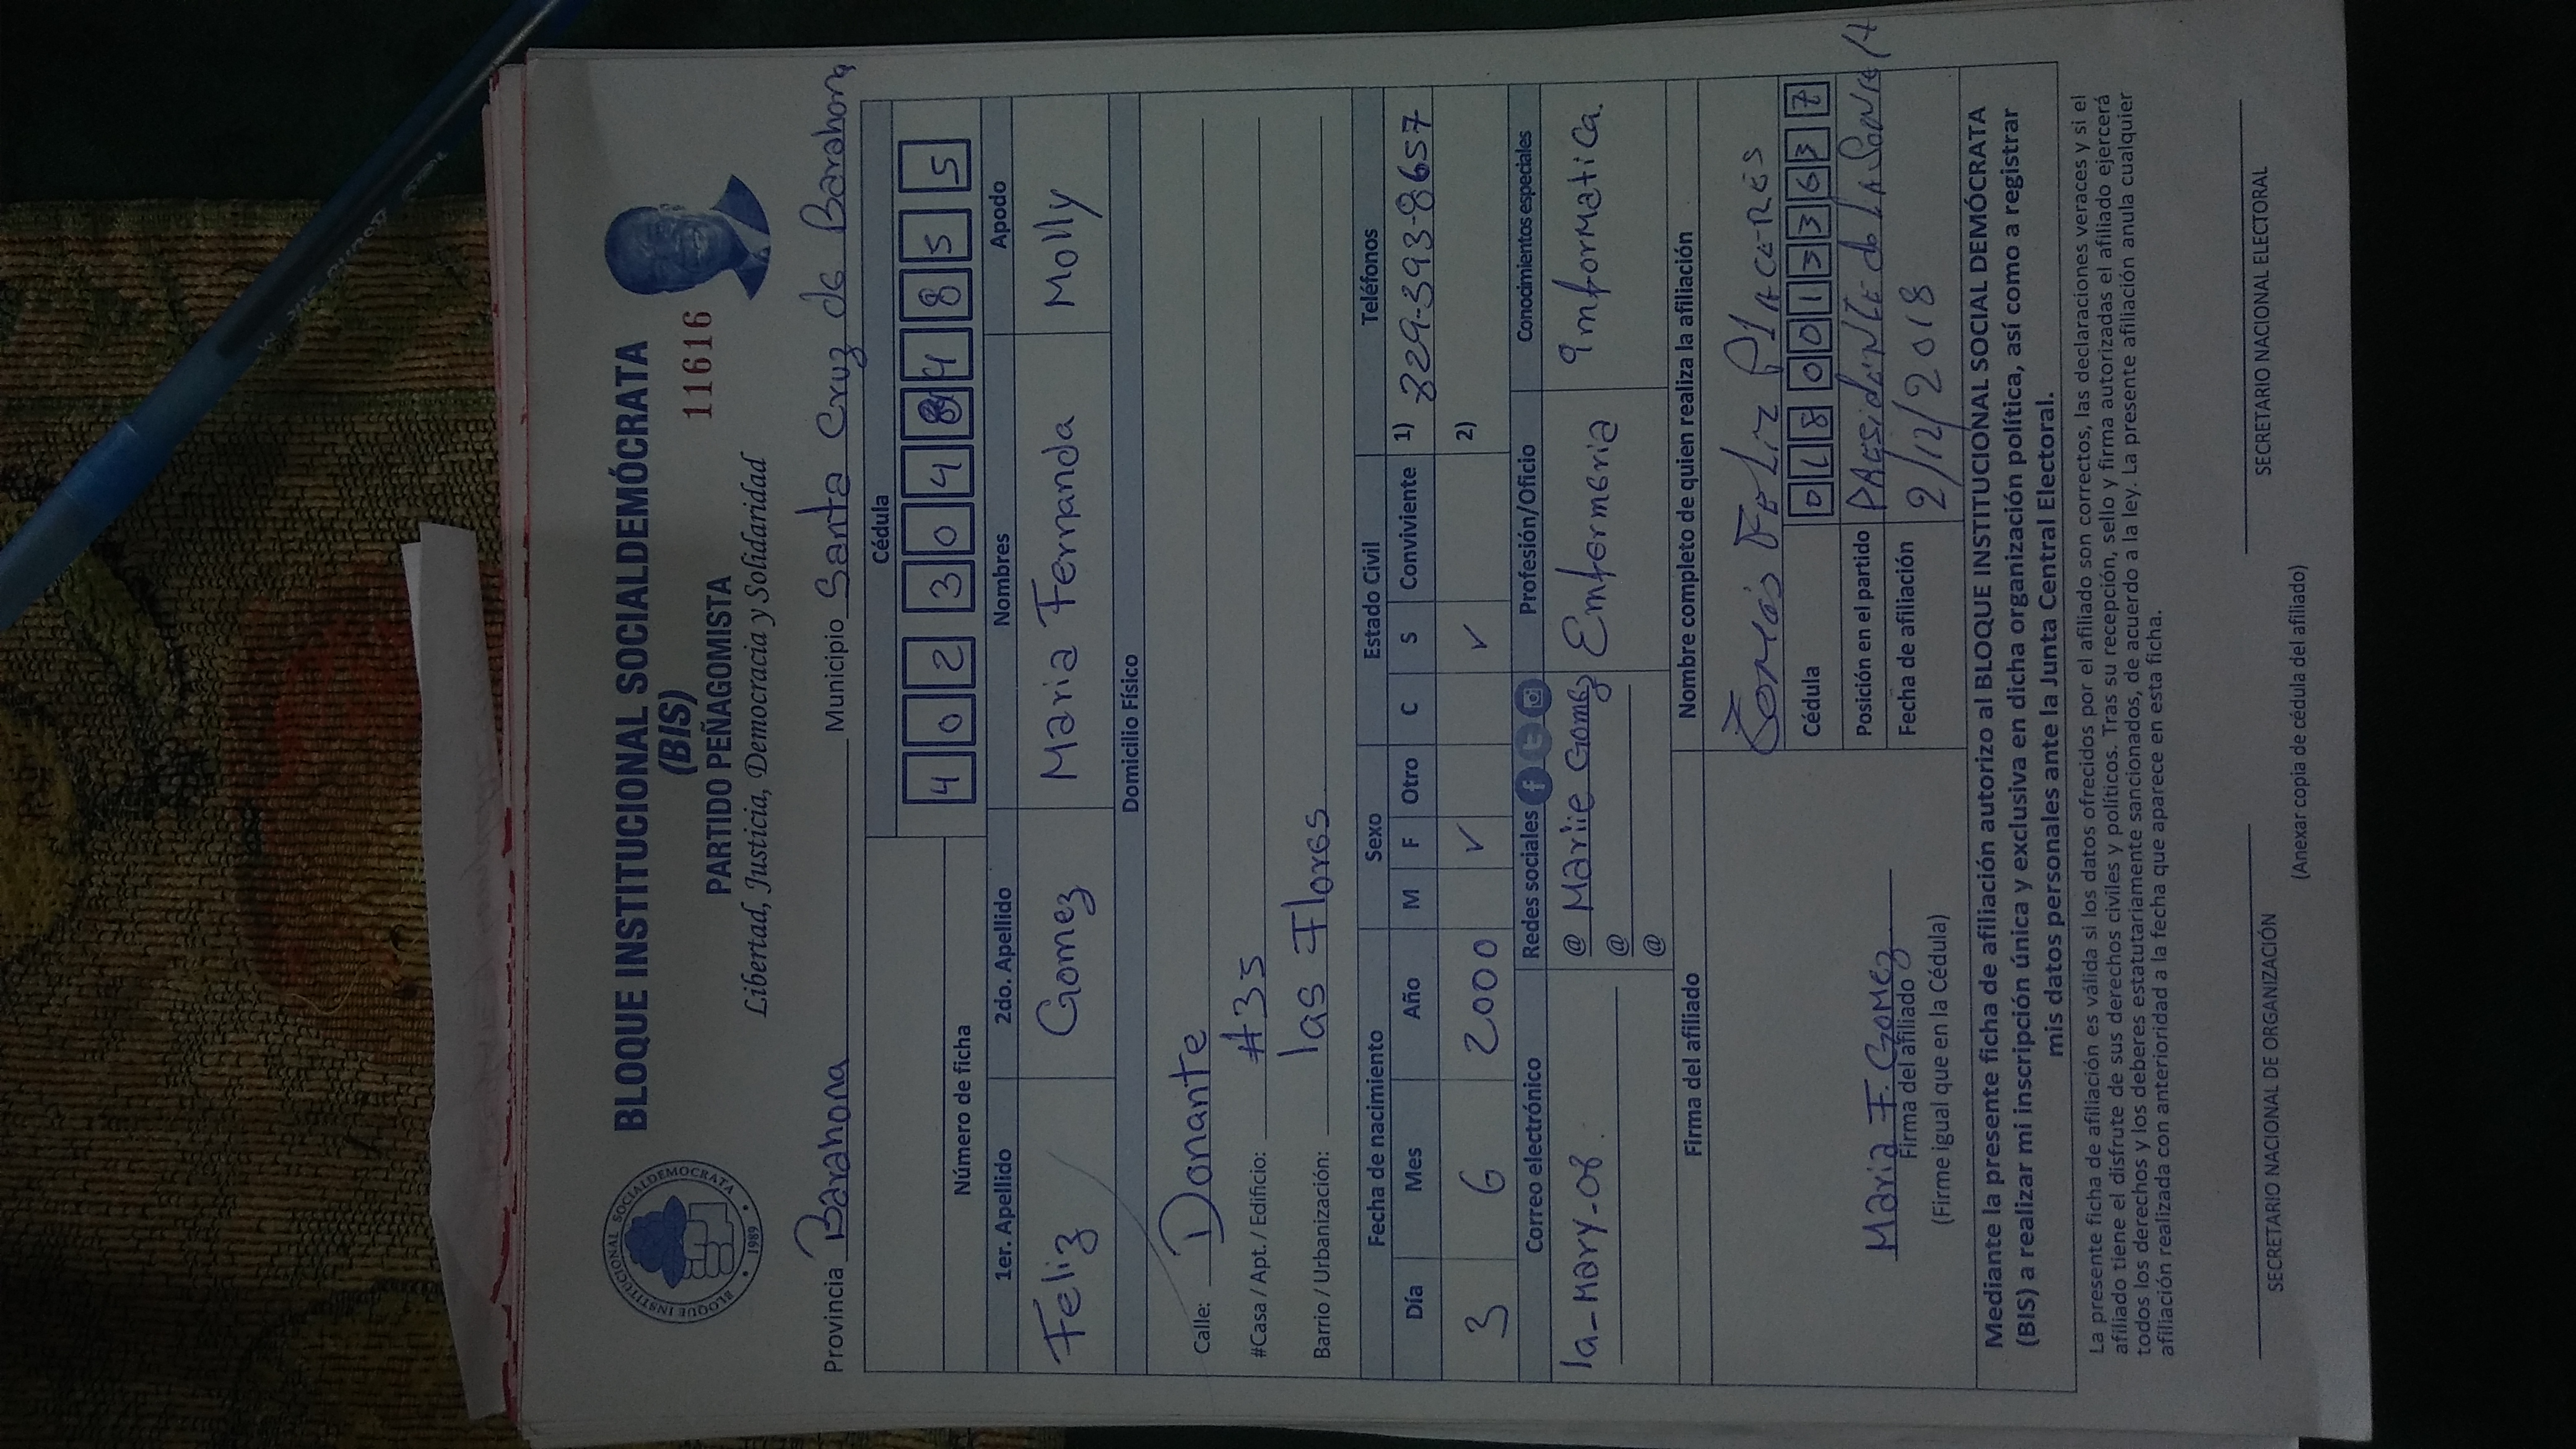 BLOQUE INSTITUCIONAL SOCIALDEMÓCRATA
(BIS)
PARTIDO PEÑAGOMISTA
11616
Libertad, Justicia, Democracia y Solidaridad
BLOQUE INSTITUCIONAL SOCIALDEMOCRATA
1989
Provincia Barahona Municipio Santa Cruz de Barahona
Cédula
4 0 2 3 0 4 8 4 8 5 5
Número de ficha
1er. Apellido 2do. Apellido Nombres Apodo
Feliz Gomez Maria Fernanda Molly
Domicilio Físico
Calle: Donante
#Casa / Apt. / Edificio: #35
Barrio / Urbanización: las Flores
Fecha de nacimiento Sexo Estado Civil Teléfonos
Día Mes Año M F Otro C S Conviviente 1) 829-393-8657
3 6 2000 ✓ ✓ 2)
Correo electrónico Redes sociales Profesión/Oficio Conocimientos especiales
la-mary-08. @ Mariie Gomez Emfermeria imformatica.
@
@
Firma del afiliado Nombre completo de quien realiza la afiliación
Feliz
Cédula 0 1 8 0 0 1 3 3 6 3 7
Posición en el partido
Fecha de afiliación 2/12/2018
Maria F. Gomez
Firma del afiliado
(Firme igual que en la Cédula)
Mediante la presente ficha de afiliación autorizo al BLOQUE INSTITUCIONAL SOCIAL DEMÓCRATA
(BIS) a realizar mi inscripción única y exclusiva en dicha organización política, así como a registrar
mis datos personales ante la Junta Central Electoral.
La presente ficha de afiliación es válida si los datos ofrecidos por el afiliado son correctos, las declaraciones veraces y si el
afiliado tiene el disfrute de sus derechos civiles y políticos. Tras su recepción, sello y firma autorizadas el afiliado ejercerá
todos los derechos y los deberes estatutariamente sancionados, de acuerdo a la ley. La presente afiliación anula cualquier
afiliación realizada con anterioridad a la fecha que aparece en esta ficha.
SECRETARIO NACIONAL DE ORGANIZACIÓN SECRETARIO NACIONAL ELECTORAL
(Anexar copia de cédula del afiliado)